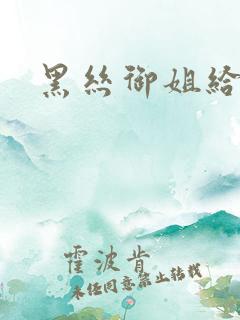 黑丝御姐给
霍波肯
未经同意禁止转载